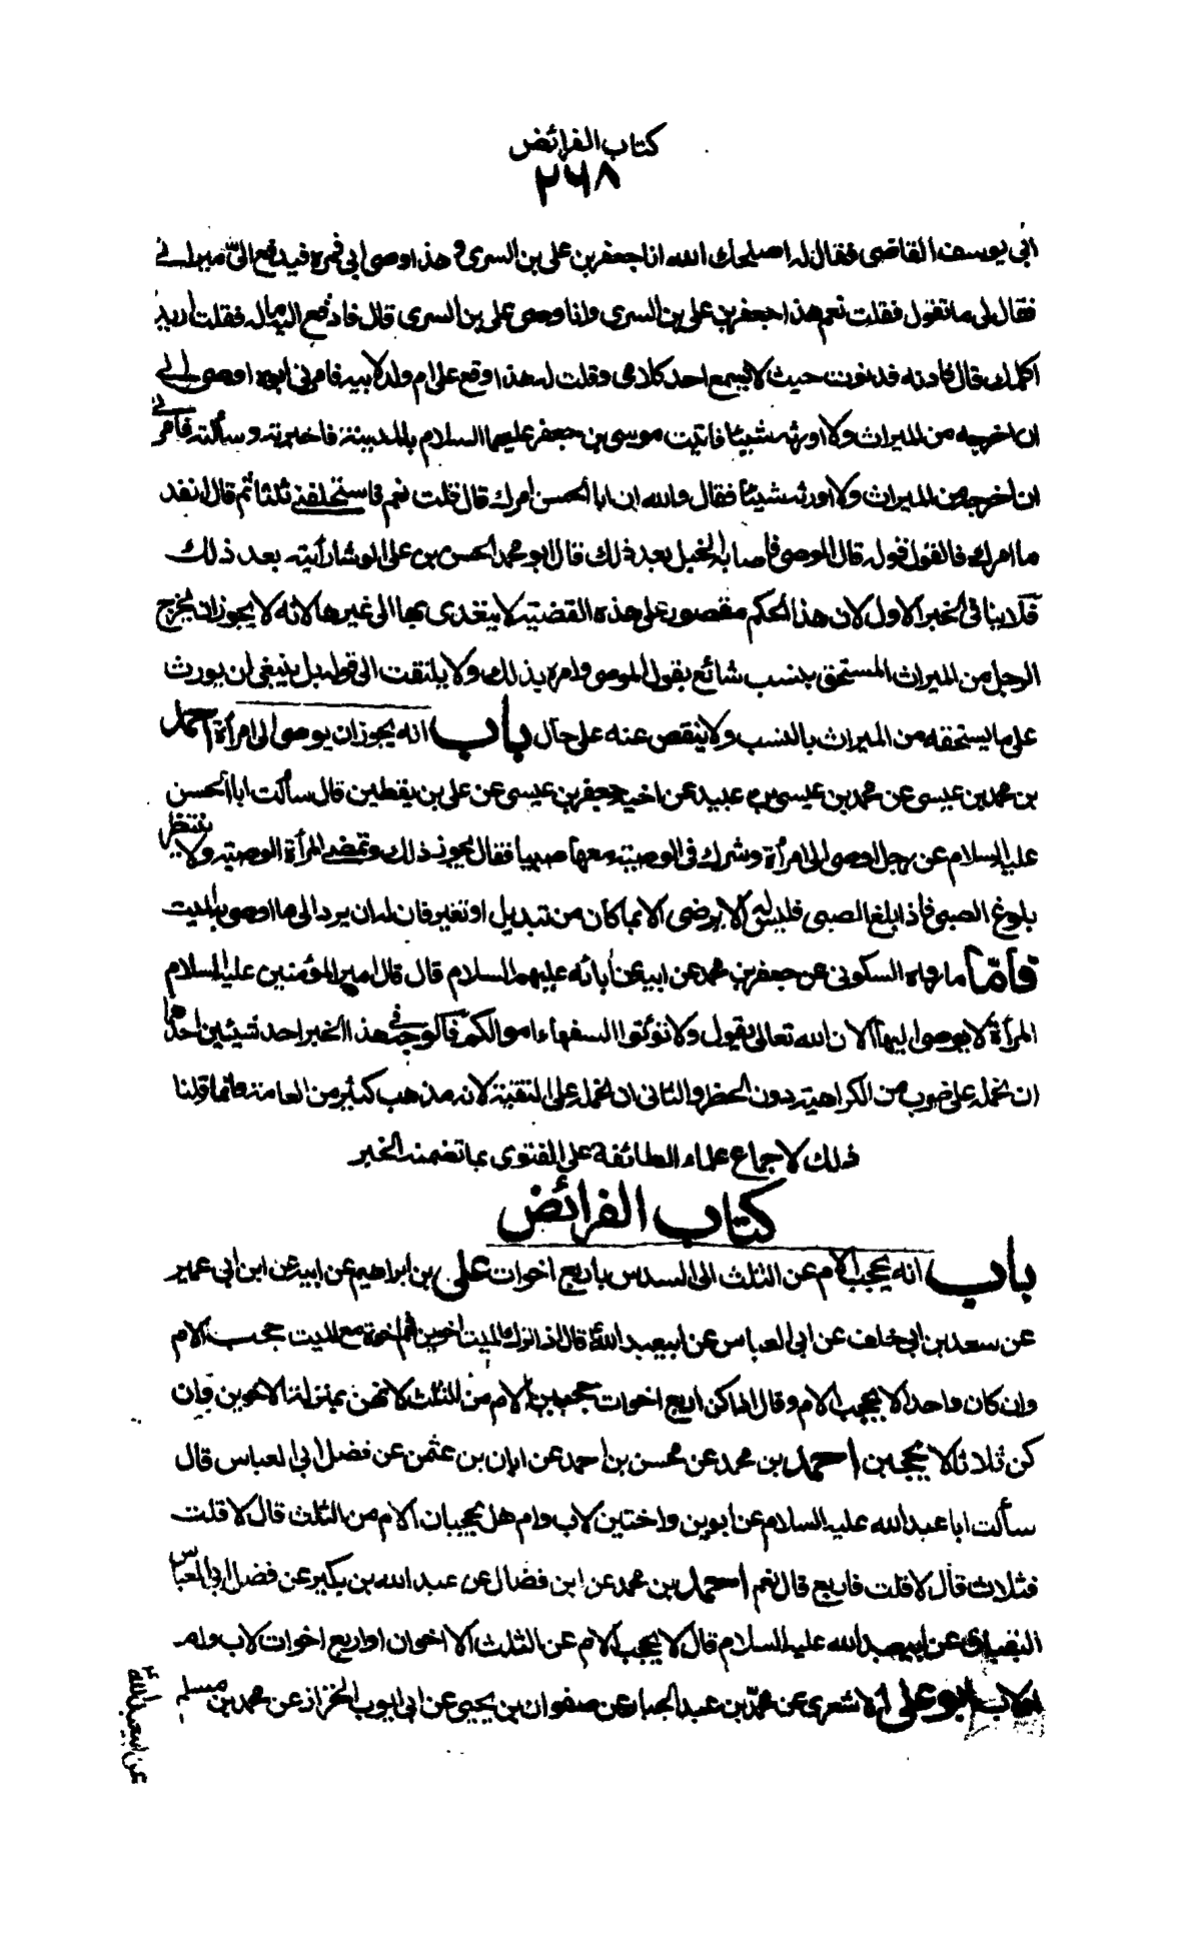 كتاب الفرائض
٢٦٨
ابى يوسف القاضى فقال له اصلحك الله انا جعفر بن على بن السرى و هذا وصى ابى فمره فيدفع الىّ ميراثى
فقال لى ما تقول فقلت نعم هذا جعفر بن على بن السرى وانا وصى على بن السرى قال فادفع اليه ماله فقلت اريد
اكلمك قال فادنه فدنوت حيث لا يسمع احد كلامى وقلت له هذا وقع على ام ولد لابيه فامرنى ابوه اوصى الى
ان اخرجه من الميراث ولا اورثه شيئا فاتيت موسى بن جعفر عليهما السلام بالمدينة فاخبرته وسألته فأمرنى
ان اخرجه من الميراث ولا اورثه شيئا فقال والله ان ابا الحسن امرك قال قلت نعم فاستحلفنى ثلثا ثم قال انفذ
ما امرك فالقول قوله قال الوصى فأصابه الخبل بعد ذلك قال ابو محمد الحسن بن على الوشا رأيته بعد ذلك
فلا ينافى الخبر الاول لان هذا الحكم مقصور على هذه القضية لا يتعدى بها الى غيرها لانه لا يجوز ان يخرج
الرجل من الميراث المستحق بنسب شائع بقول الموصى وامره بذلك ولا يلتفت الى قوله بل ينبغى ان يورث
على ما يستحقه من الميراث بالنسب ولا ينقص عنه على حال باب انه يجوز ان يوصى الى امرأة احمد
بن محمد بن عيسى عن محمد بن عيسى بن عبيد عن اخيه جعفر بن عيسى عن على بن يقطين قال سألت ابا الحسن
عليه السلام عن رجل اوصى الى امرأة وشرك فى الوصية معها صبيا فقال يجوز ذلك وتمضى المرأة الوصية ولا ينتظر
بلوغ الصبى فاذا بلغ الصبى فليس له الا يرضى الا بما كان من تبديل او تغير فان له ان يرد الى ما اوصى به الميت
فأمّا ما رواه السكونى عن جعفر بن محمد عن ابيه عن أبائه عليهم السلام قال قال امير المؤمنين عليه السلام
المرأة لا يوصى اليها لان الله تعالى يقول ولا تؤتوا السفهاء اموالكم فالوجه فى هذا الخبر احد شيئين احدهما
ان نحمله على ضرب من الكراهية دون الحظر والثانى ان نحمله على التقية لانه مذهب كثير من العامة وانما قلنا
ذلك لاجماع علماء الطائفة على الفتوى بما تضمنه الخبر
كتاب الفرائض
باب انه يحجب الام عن الثلث الى السدس باربع اخوات على بن ابراهيم عن ابيه عن ابن ابى عمير
عن سعد بن ابى خلف عن ابى العباس عن ابيعبد الله قال اذا ترك الميت اخوين فهم اخوة مع الميت حجبا الام
وان كان واحدا لا يحجب الام وقال اذا كن اربع اخوات حجبن الام من الثلث لانهن بمنزلة الاخوين وان
كن ثلاثا لا يحجبن احمد بن محمد عن محسن بن احمد عن ابان بن عثمن عن فضل ابى العباس قال
سألت ابا عبد الله عليه السلام عن ابوين واختين لاب وام هل يحجبان الام من الثلث قال لا قلت
فثلاث قال لا قلت فاربع قال نعم احمد بن محمد عن ابن فضال عن عبد الله بن بكير عن فضل ابى العباس
البقباق عن ابيعبد الله عليه السلام قال لا يحجب الام عن الثلث الا اخوان او اربع اخوات لاب وام
او لاب ابو على الاشعرى عن محمد بن عبد الجبار عن صفوان بن يحيى عن ابى ايوب الخزاز عن محمد بن مسلم
عن ابيعبد الله